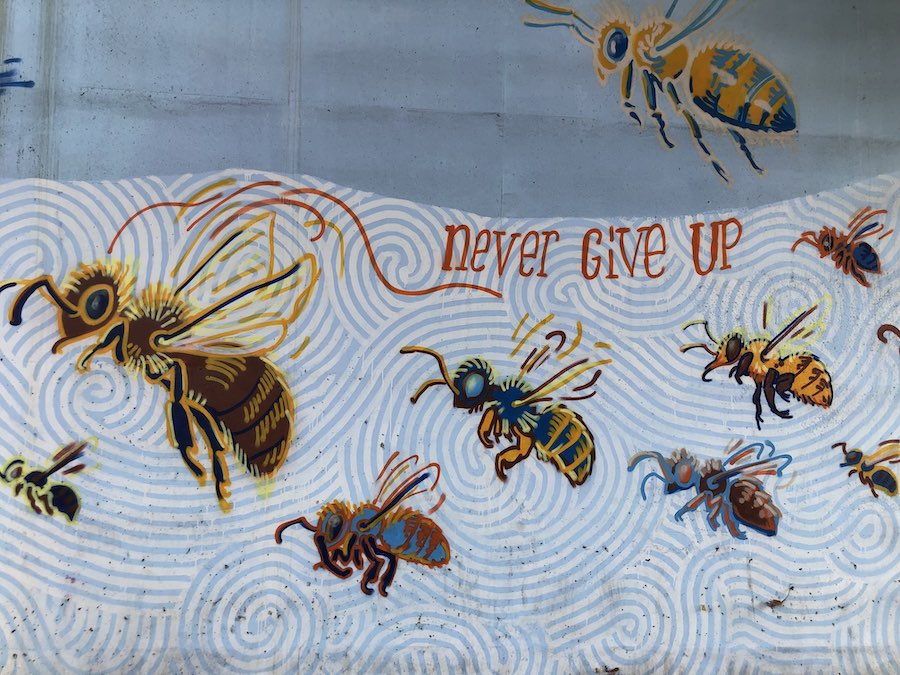 never Give UP